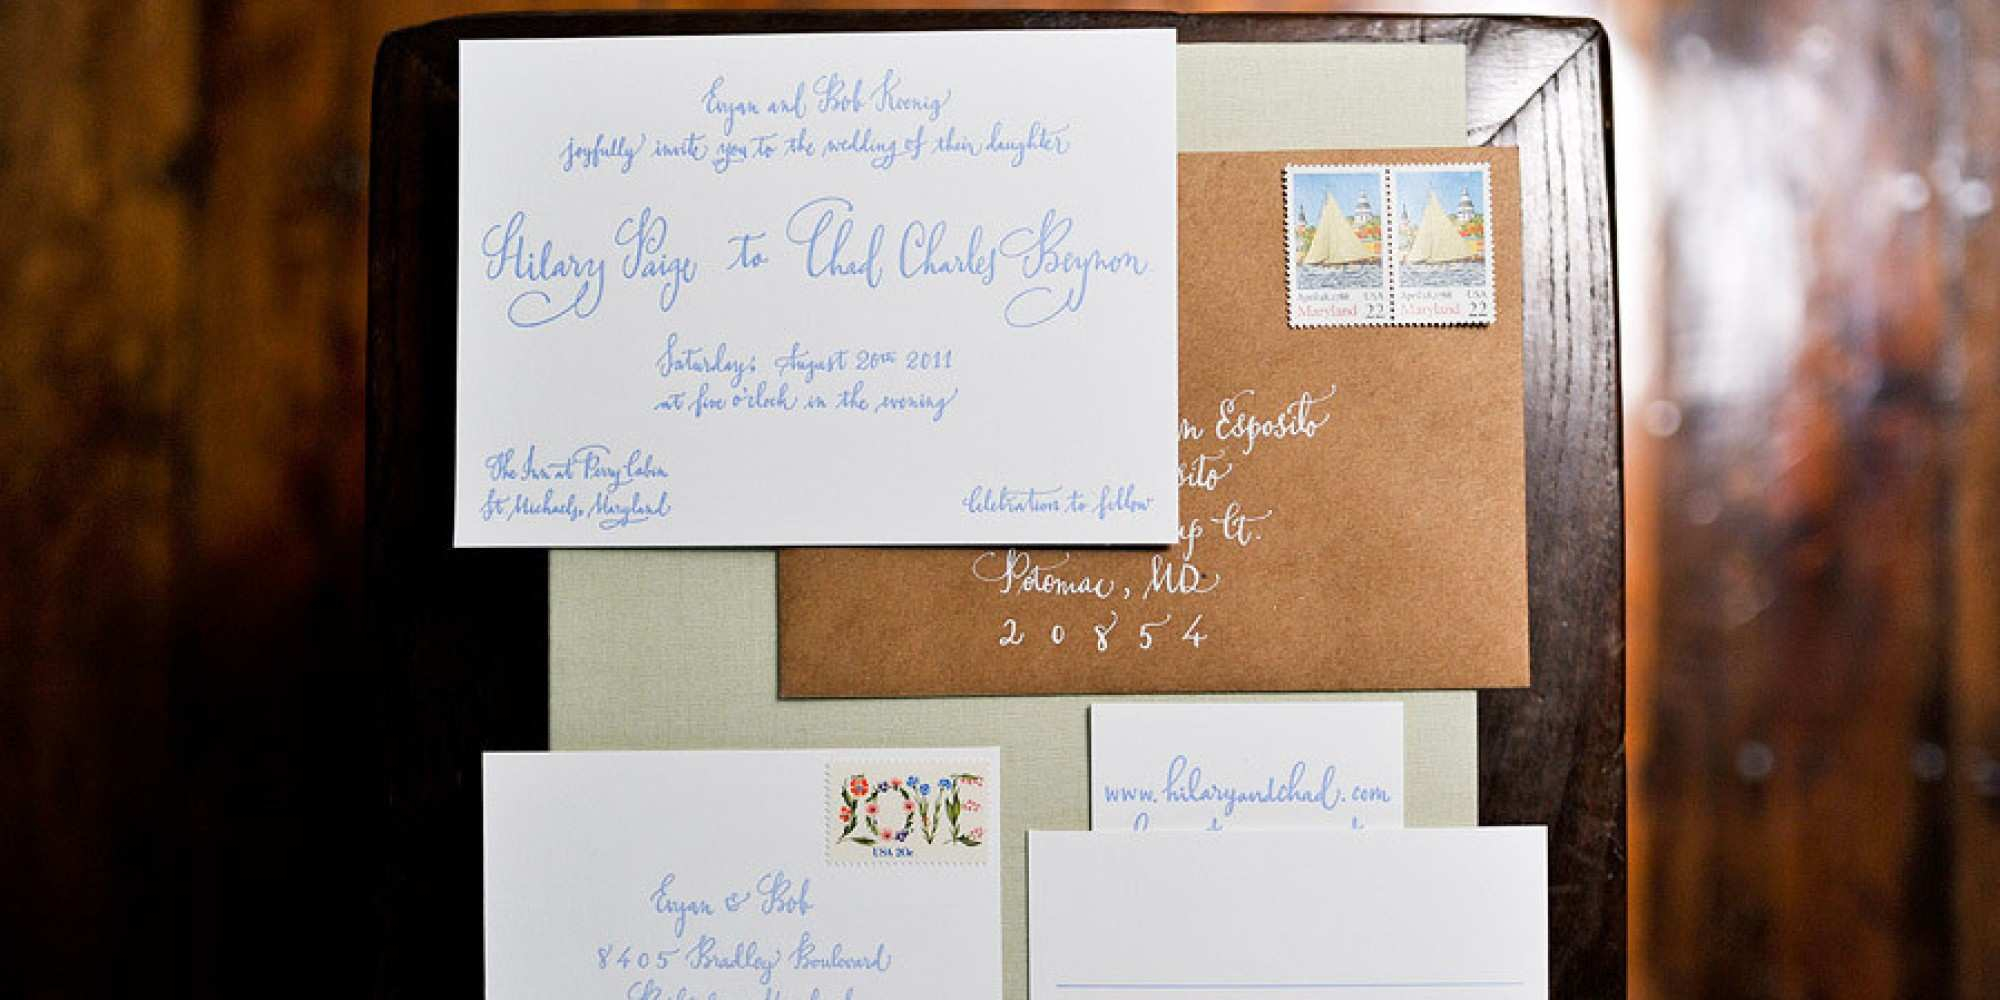 Evyan and Bob Koenig
joyfully invite you to the wedding of their daughter
Hilary Paige to Chad Charles Beynon
Saturday, August 20th 2011
at five o'clock in the evening
The Inn at Perry Cabin
St Michaels, Maryland
Celebration to follow
April 28, 1788 USA
Maryland 22
April 28, 1788 USA
Maryland 22
Esposito
Ct.
Potomac, MD
20854
LOVE
USA 20c
Evyan & Bob
8405 Bradley Boulevard
www.hilaryandchad.com